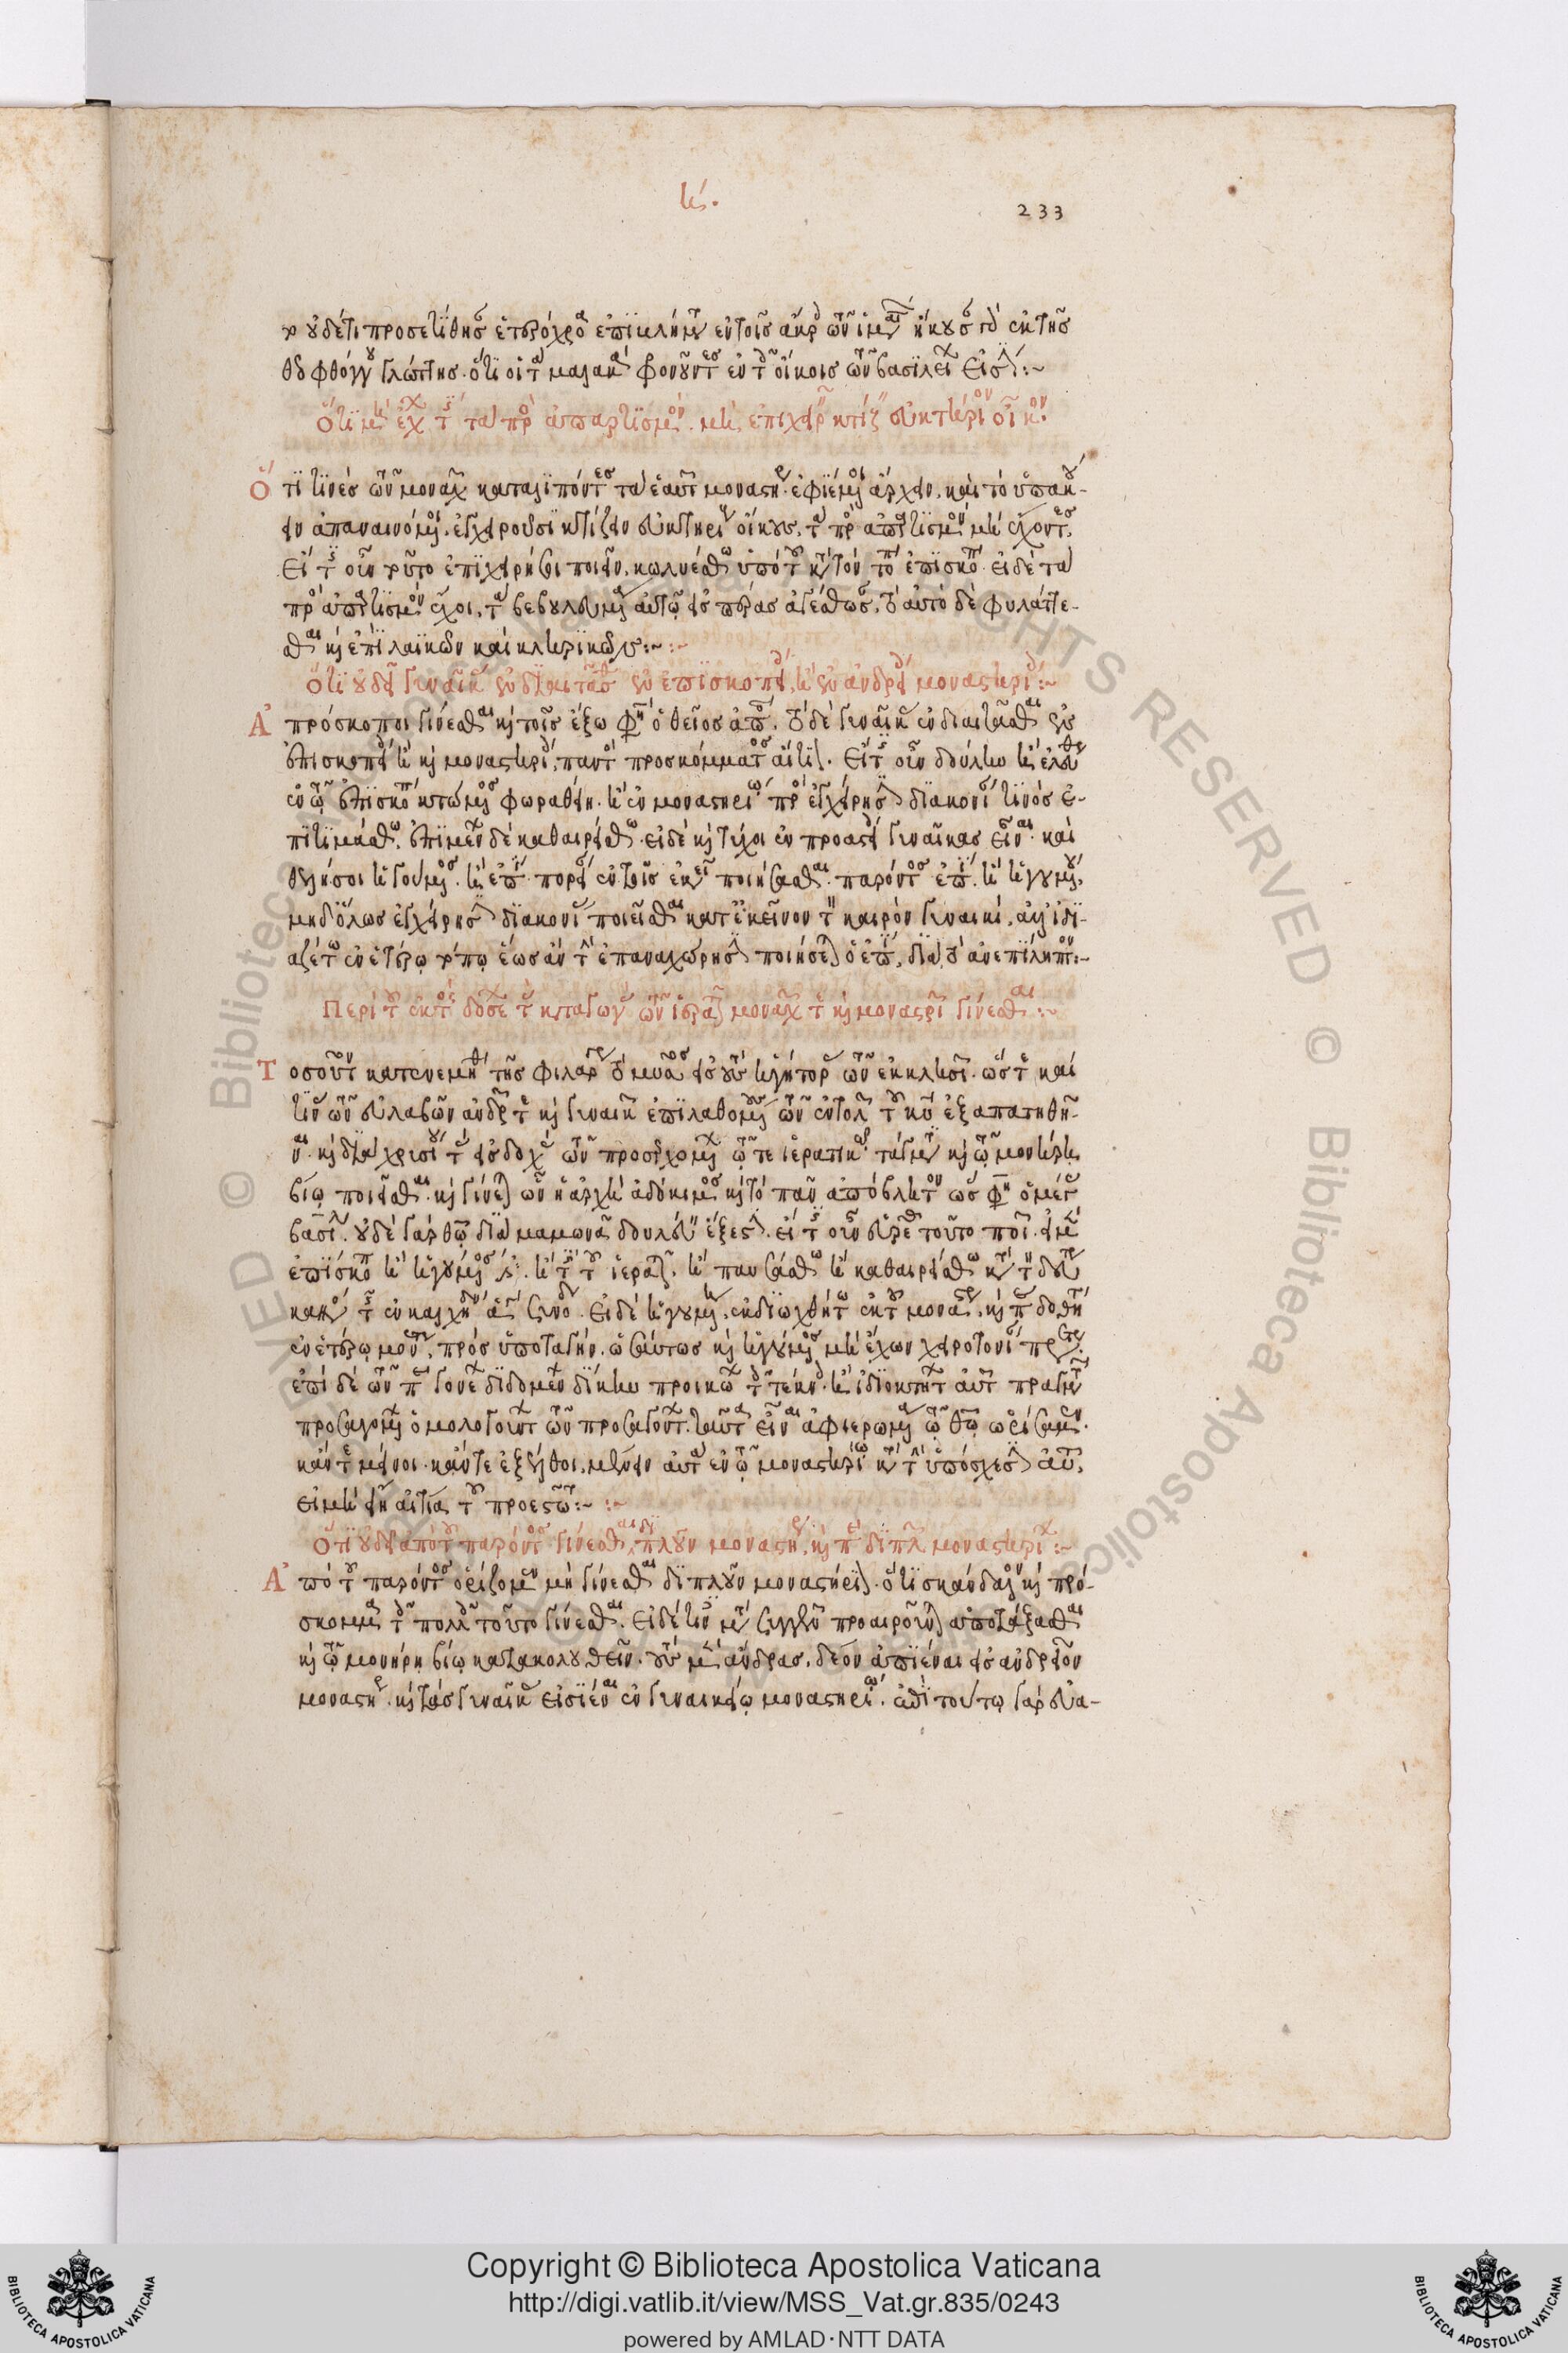 κϛ´. 233
οὐδέ τι προσετίθησαν ἑτερόχροα ἐπιβλήματα ἐν τοῖς ἄκροις τῶν ἱματίων ἤκουσαν γὰρ ἐκ τῆς
θεοφθόγγου γλώττης. ὅτι οἱ τὰ μαλακὰ φοροῦντες ἐν τοῖς οἴκοις τῶν βασιλέων εἰσίν:~
Ὅτι μὴ ἔχοντάς τινας τὰ πρὸς ἀπαρτισμόν. μὴ ἐπιχειρεῖν κτίζειν εὐκτήριον οἶκον:
Ὅτι τινὲς τῶν μοναχῶν καταλιπόντες τὰ ἑαυτῶν μοναστήρια. ἐφιέμενοι ἄρχειν. καὶ τὸ ὑπακού-
ειν ἀπαναινόμενοι. ἐγχειροῦσι κτίζειν εὐκτηρίους οἴκους. τὰ πρὸς ἀπαρτισμὸν μὴ ἔχοντες.
Εἴ τις οὖν τοῦτο ἐπιχειρήσοι ποιεῖν. κωλυέσθω ὑπὸ τοῦ κατὰ τὸν τόπον ἐπισκόπου. εἰ δὲ τὰ
πρὸς ἀπαρτισμὸν ἔχοι. τὰ βεβουλευμένα αὐτῷ εἰς πέρας ἀγέσθωσαν. τὸ αὐτὸ δὲ φυλάττε-
σθαι καὶ ἐπὶ λαϊκῶν καὶ κληρικῶν:~
Ὅτι οὐ δεῖ γυναῖκας ἐνδιαιτᾶσθαι ἐν ἐπισκοπείοις. ἢ ἐν ἀνδρείοις μοναστηρίοις:~
Ἀπρόσκοποι γίνεσθαι καὶ τοῖς ἔξω φησὶν ὁ θεῖος ἀπόστολος. τὸ δὲ γυναῖκας ἐνδιαιτᾶσθαι ἐν
ἐπισκοπείοις ἢ καὶ μοναστηρίοις. παντὸς προσκόμματος αἴτιον. Εἴ τις οὖν δούλην ἢ ἐλευθέραν
ἐν τῷ ἐπισκοπείῳ κτώμενος φωραθείη. ἢ ἐν μοναστηρίῳ πρὸς ἐγχείρησιν διακονίας τινὸς ἐ-
πιτιμάσθω. ἐπιμένων δὲ καθαιρείσθω. εἰ δὲ καὶ τύχοι ἐν προαστείοις γυναῖκας εἶναι. καὶ
θελήσοι ἡγούμενος. ἢ ἐπίσκοπος πορείαν ἐν τοῖς ἐκεῖσε ποιήσασθαι. παρόντος ἐπισκόπου ἢ ἡγουμένου.
μηδόλως ἐγχείρησιν διακονίας ποιεῖσθαι κατ' ἐκεῖνον τὸν καιρὸν γυναικί. ἀλλ' ἰδι-
αζέτω ἐν ἑτέρῳ τόπῳ ἕως ἂν τὴν ἐπαναχώρησιν ποιήσεται ὁ ἐπίσκοπος. διὰ τὸ ἀνεπίληπτον:~
Περὶ τοῦ ἐκτὸς δόσεως τὰς καταγωγὰς τῶν ἱερατικῶν μοναχῶν τε καὶ μοναστριῶν γίνεσθαι:~
Τοσοῦτον κατενεμήθη τῆς φιλαργυρίας τὸ μύσος εἰς τοὺς ἡγήτορας τῶν ἐκκλησιῶν. ὥστε καί
τινας τῶν εὐλαβῶν ἀνδρῶν τε καὶ γυναικῶν ἐπιλαθομένους τῶν ἐντολῶν τοῦ κυρίου ἐξαπατηθῆ-
ναι. καὶ διὰ χρυσίου τὰς εἰσδοχὰς τῶν προσερχομένων τῷ τε ἱερατικῷ τάγματι καὶ τῷ μονήρει
βίῳ ποιεῖσθαι. καὶ γίνεται ὧν ἡ ἀρχὴ ἀδόκιμος καὶ τὸ πᾶν ἀπόβλητον ὥς φησιν ὁ μέγας
βασίλειος. οὐδὲ γὰρ θεῷ διὰ μαμωνᾶ δουλεύειν ἔξεστιν. εἴ τις οὖν εὑρεθῇ τοῦτο ποιῶν. εἰ μὲν
ἐπίσκοπος ἢ ἡγούμενος. ἤ τις τοῦ ἱερατικοῦ. ἢ παυσάσθω ἢ καθαιρείσθω κατὰ τὸν δεύτερον
κανόνα τῆς ἐν καλχηδόνι ἁγίας συνόδου. Εἰ δὲ ἡγουμένη. ἐκδιωχθήτω ἐκ τοῦ μοναστηρίου. καὶ παραδοθήτω
ἐν ἑτέρῳ μοναστηρίῳ. πρὸς ὑποταγήν. ὡσαύτως καὶ ἡγούμενος μὴ ἔχων χειροτονίαν πρεσβυτέρου.
ἐπὶ δὲ τῶν παρὰ γονέων διδομένων δίκην προικῴων τοῖς τέκνοις. ἢ ἰδιοκτήτων αὐτῶν πραγμάτων
προσαγομένων ὁμολογούντων τῶν προσαγόντων. ταῦτα εἶναι ἀφιερωμένα τῷ θεῷ ὡρίσαμεν.
κἄν τε μένοι. κἄν τε ἐξέλθοι. μένειν αὐτὰ ἐν τῷ μοναστηρίῳ κατὰ τὴν ὑπόσχεσιν αὐτοῦ.
εἰ μὴ εἴη αἰτία τοῦ προεστῶτος:~
Ὅτι οὐ δεῖ ἀπὸ τοῦ παρόντος γίνεσθαι διπλοῦν μοναστήριον. καὶ περὶ διπλῶν μοναστηρίων:~
Ἀπὸ τοῦ παρόντος ὁρίζομεν μὴ γίνεσθαι διπλοῦν μοναστήριον. ὅτι σκάνδαλον καὶ πρό-
σκομμα τοῖς πολλοῖς τοῦτο γίνεσθαι. Εἰ δέ τινες μετὰ συγγενῶν προαιροῦνται ἀποτάξασθαι
καὶ τῷ μονήρη βίῳ κατακολουθεῖν. τοὺς μὲν ἄνδρας. δέον ἀπιέναι εἰς ἀνδρεῖον
μοναστήριον. καὶ τὰς γυναῖκας εἰσιέναι ἐν γυναικείῳ μοναστηρίῳ. ἐπὶ τούτῳ γὰρ εὐα-
Copyright © Biblioteca Apostolica Vaticana
http://digi.vatlib.it/view/MSS_Vat.gr.835/0243
powered by AMLAD·NTT DATA